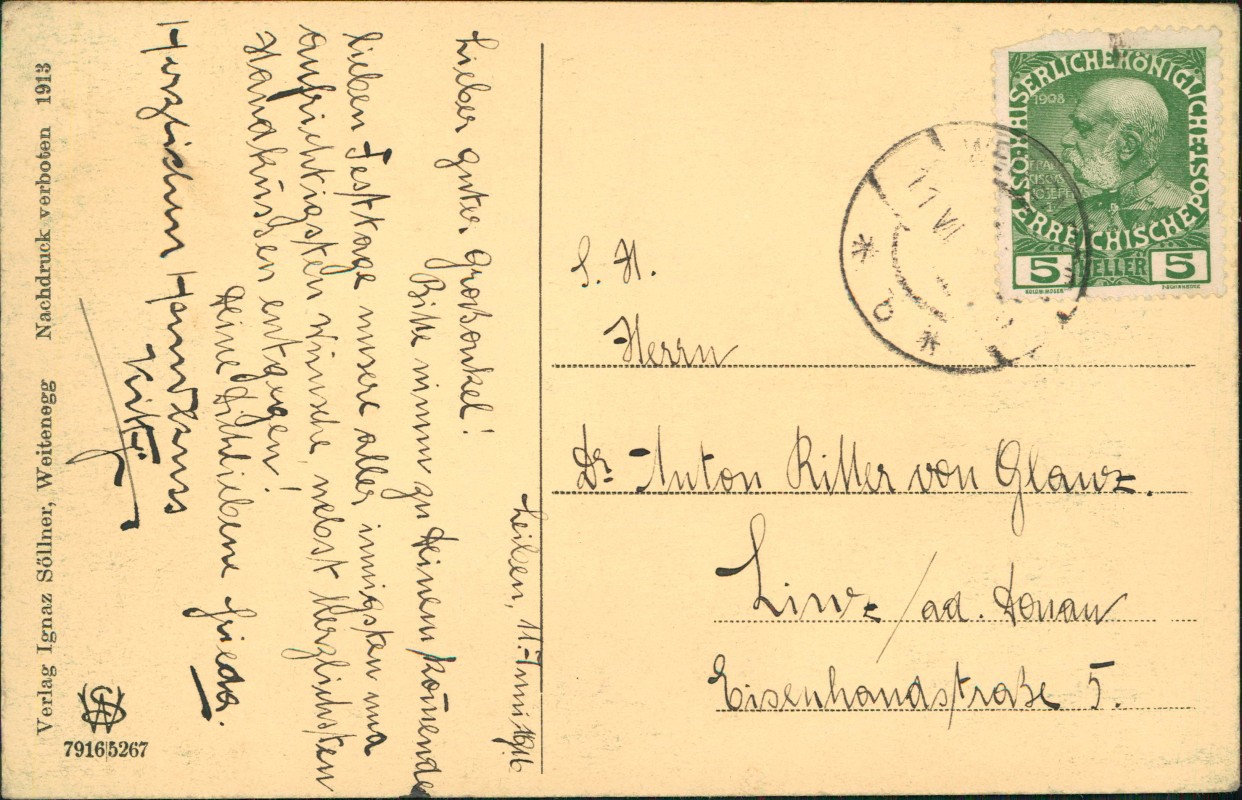 Leiben, 11. Juni 1916
Lieber guter Großonkel!
Bitte nimm zu Deinem kom̄enden
lieben Festtage unsere aller innigsten und
aufrichtigsten Wünsche, nebst herzlichsten
Handküssen entgegen!
Deine Dichliebende Frieda.
Herzlichen Handkuss
S. H.
Herrn
Dr. Anton Ritter von Glanz.
Linz / ad. Donau
Eisenhandstraße 5.
KAISERLICHE KÖNIGLICHE ÖSTERREICHISCHE POST
1908
FRANZ JOSEF I
5 HELLER 5
KOLOM. MOSER
F. SCHIRNBÖCK
11 VI
* a *
Verlag Ignaz Söllner, Weitenegg Nachdruck verboten 1913
7916 5267